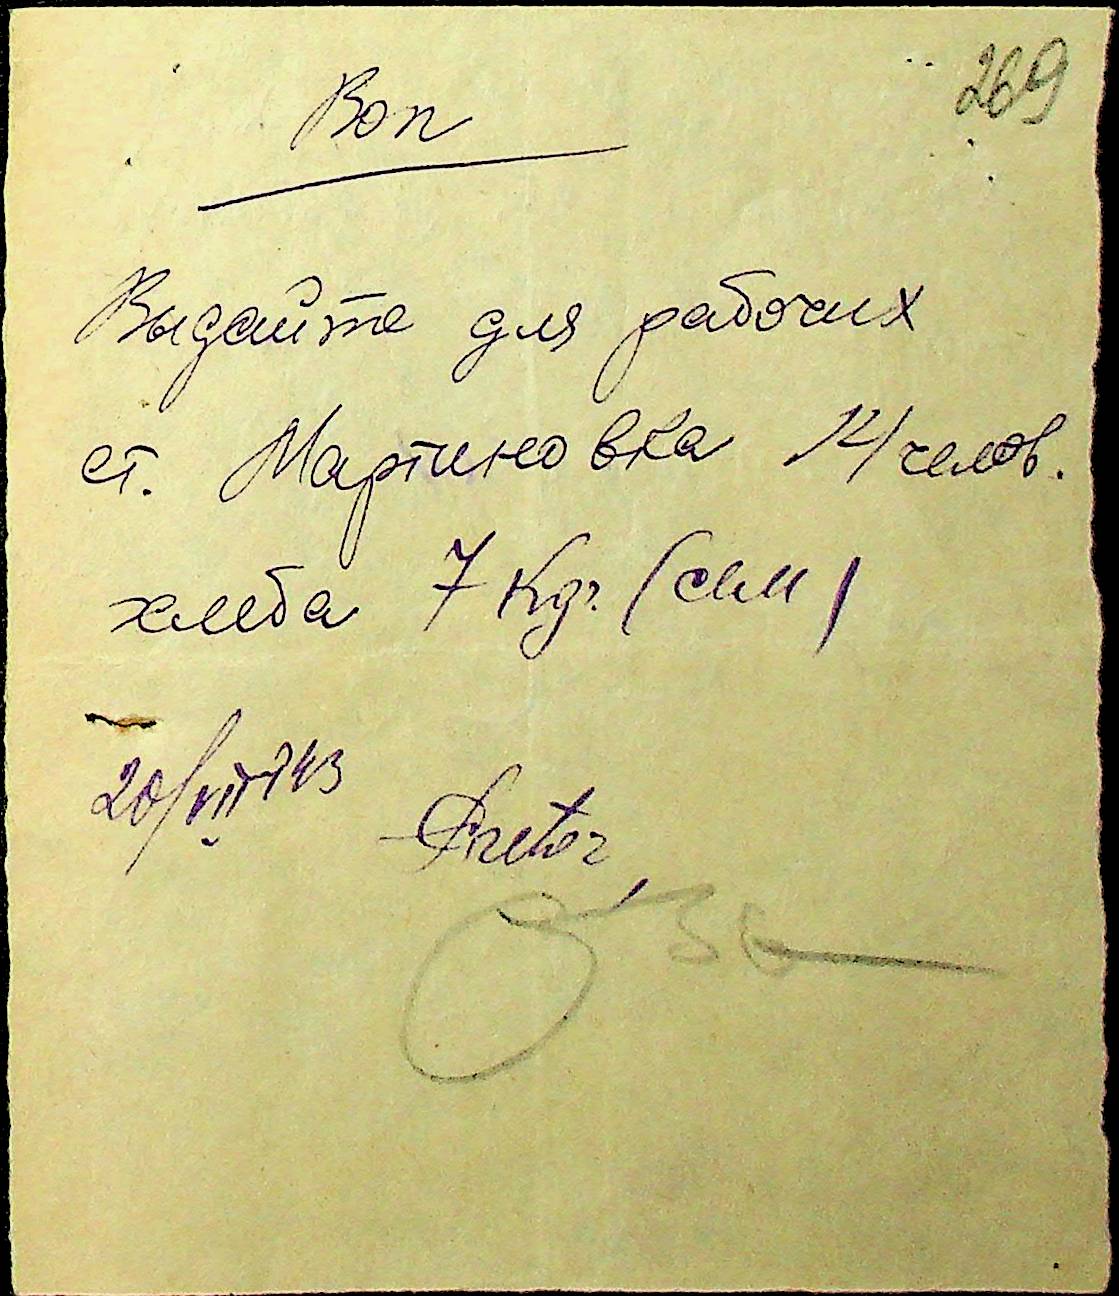 269
Воп
Выдайте для рабочих
ст. Мартиновка 14 челов.
хлеба 7 кгр. (сем)
20/VIII 43
Pretor